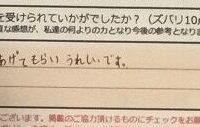 を受けられていかがでしたか？（ズバリ10点
直な感想が、私達の何よりの力となり今後の参考となりま
あげてもらい うれしいです。
ございます。
掲載のご協力頂けるものにチェックをお願